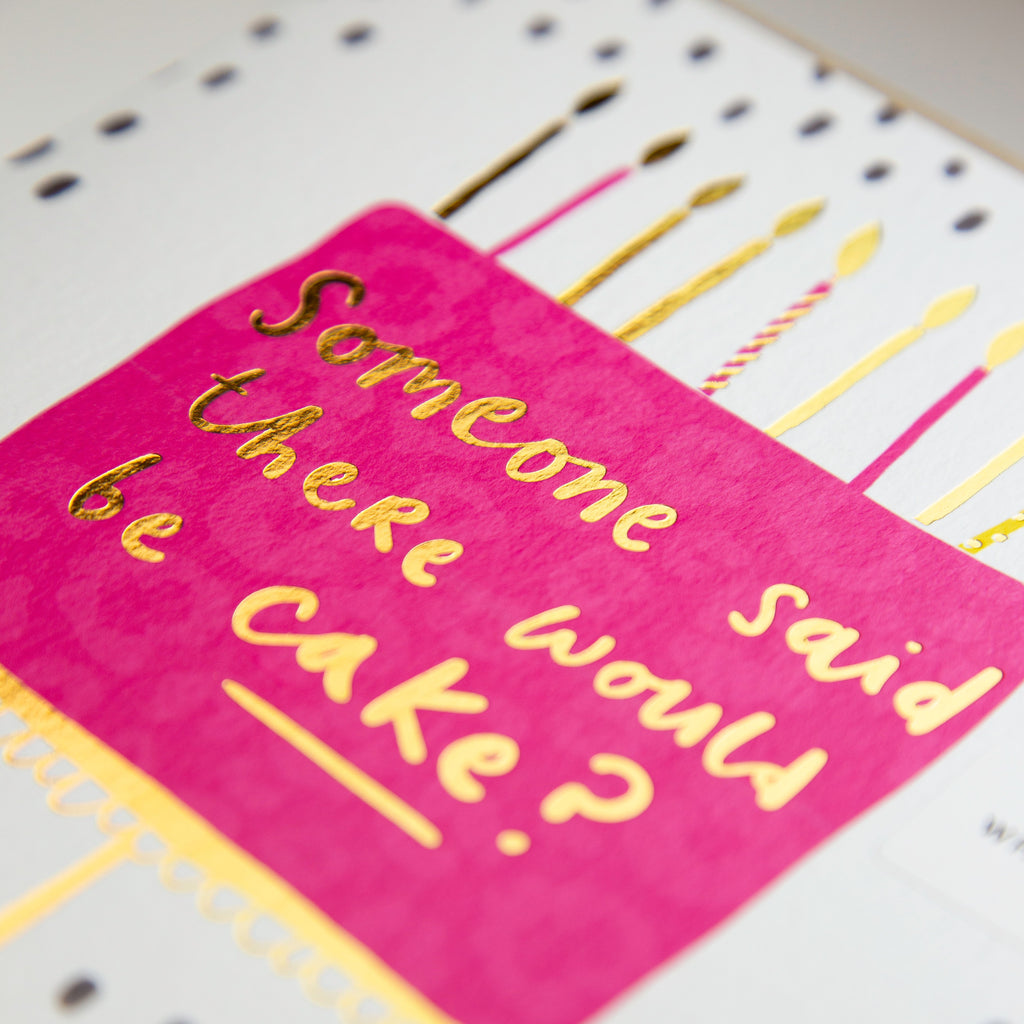 Someone said
there would
be cake?